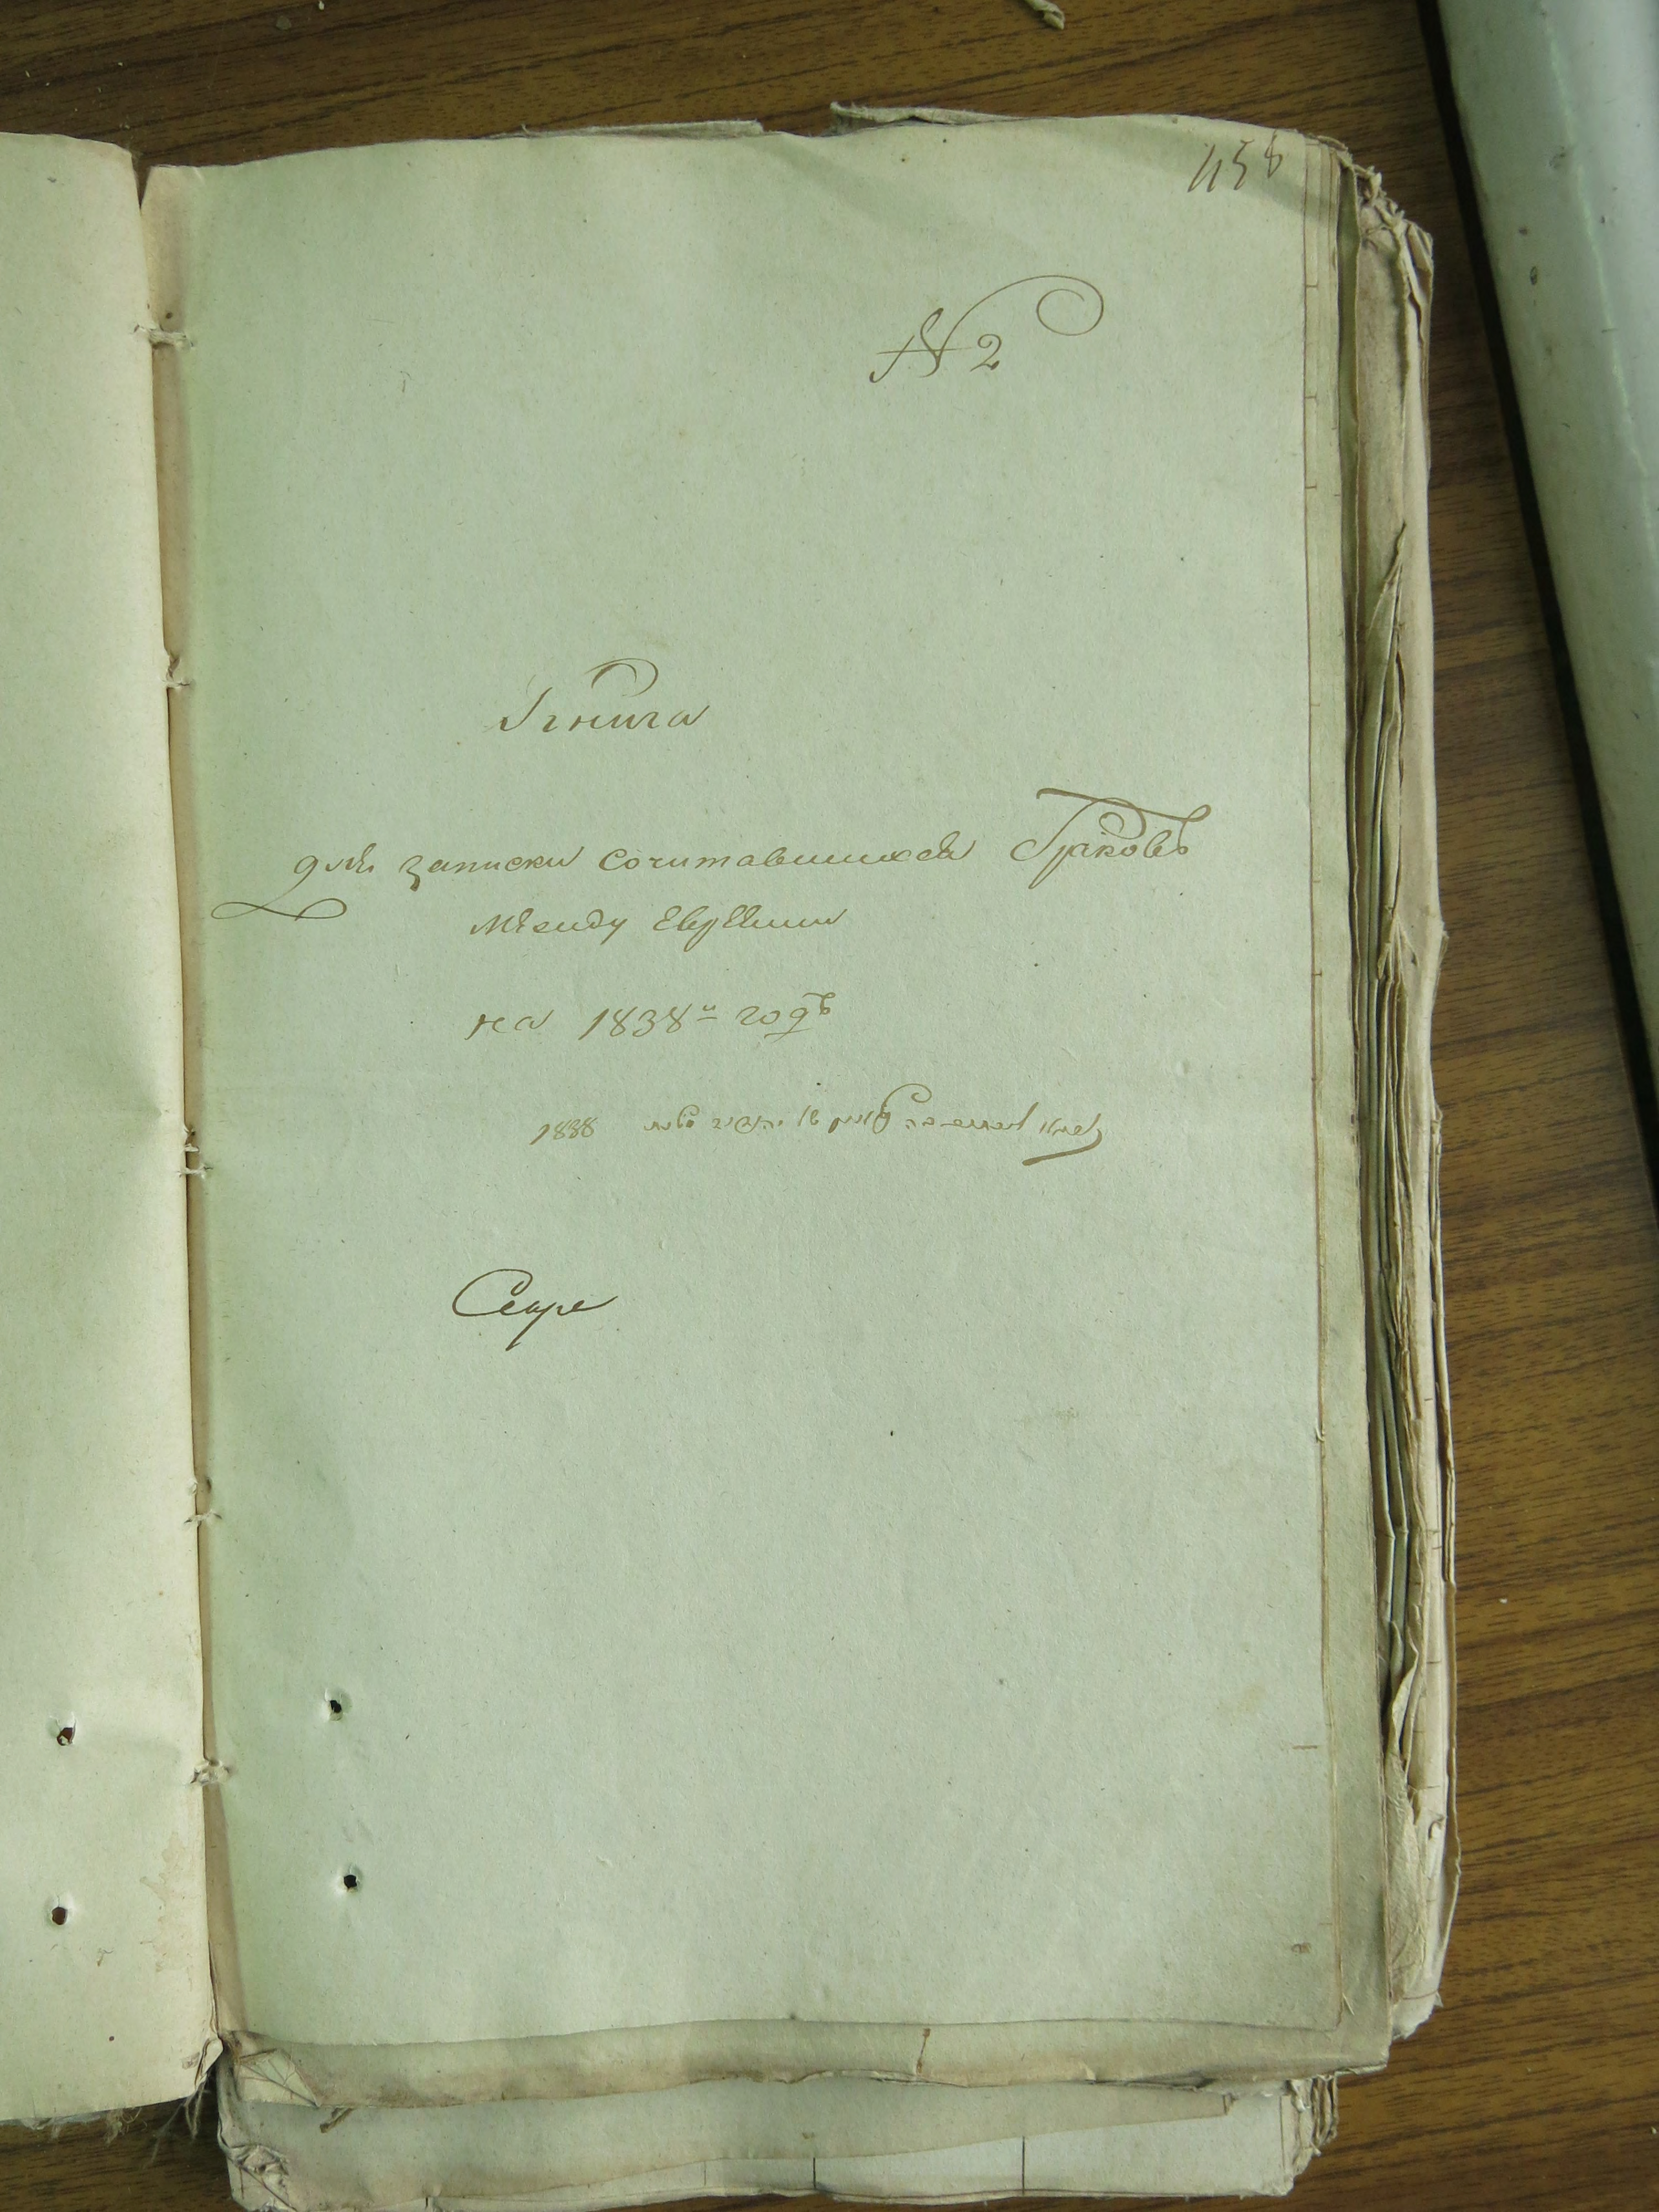 458
N 2
Книга
для записки сочитавшихся браковъ
между Евреями
на 1838й годъ
1838